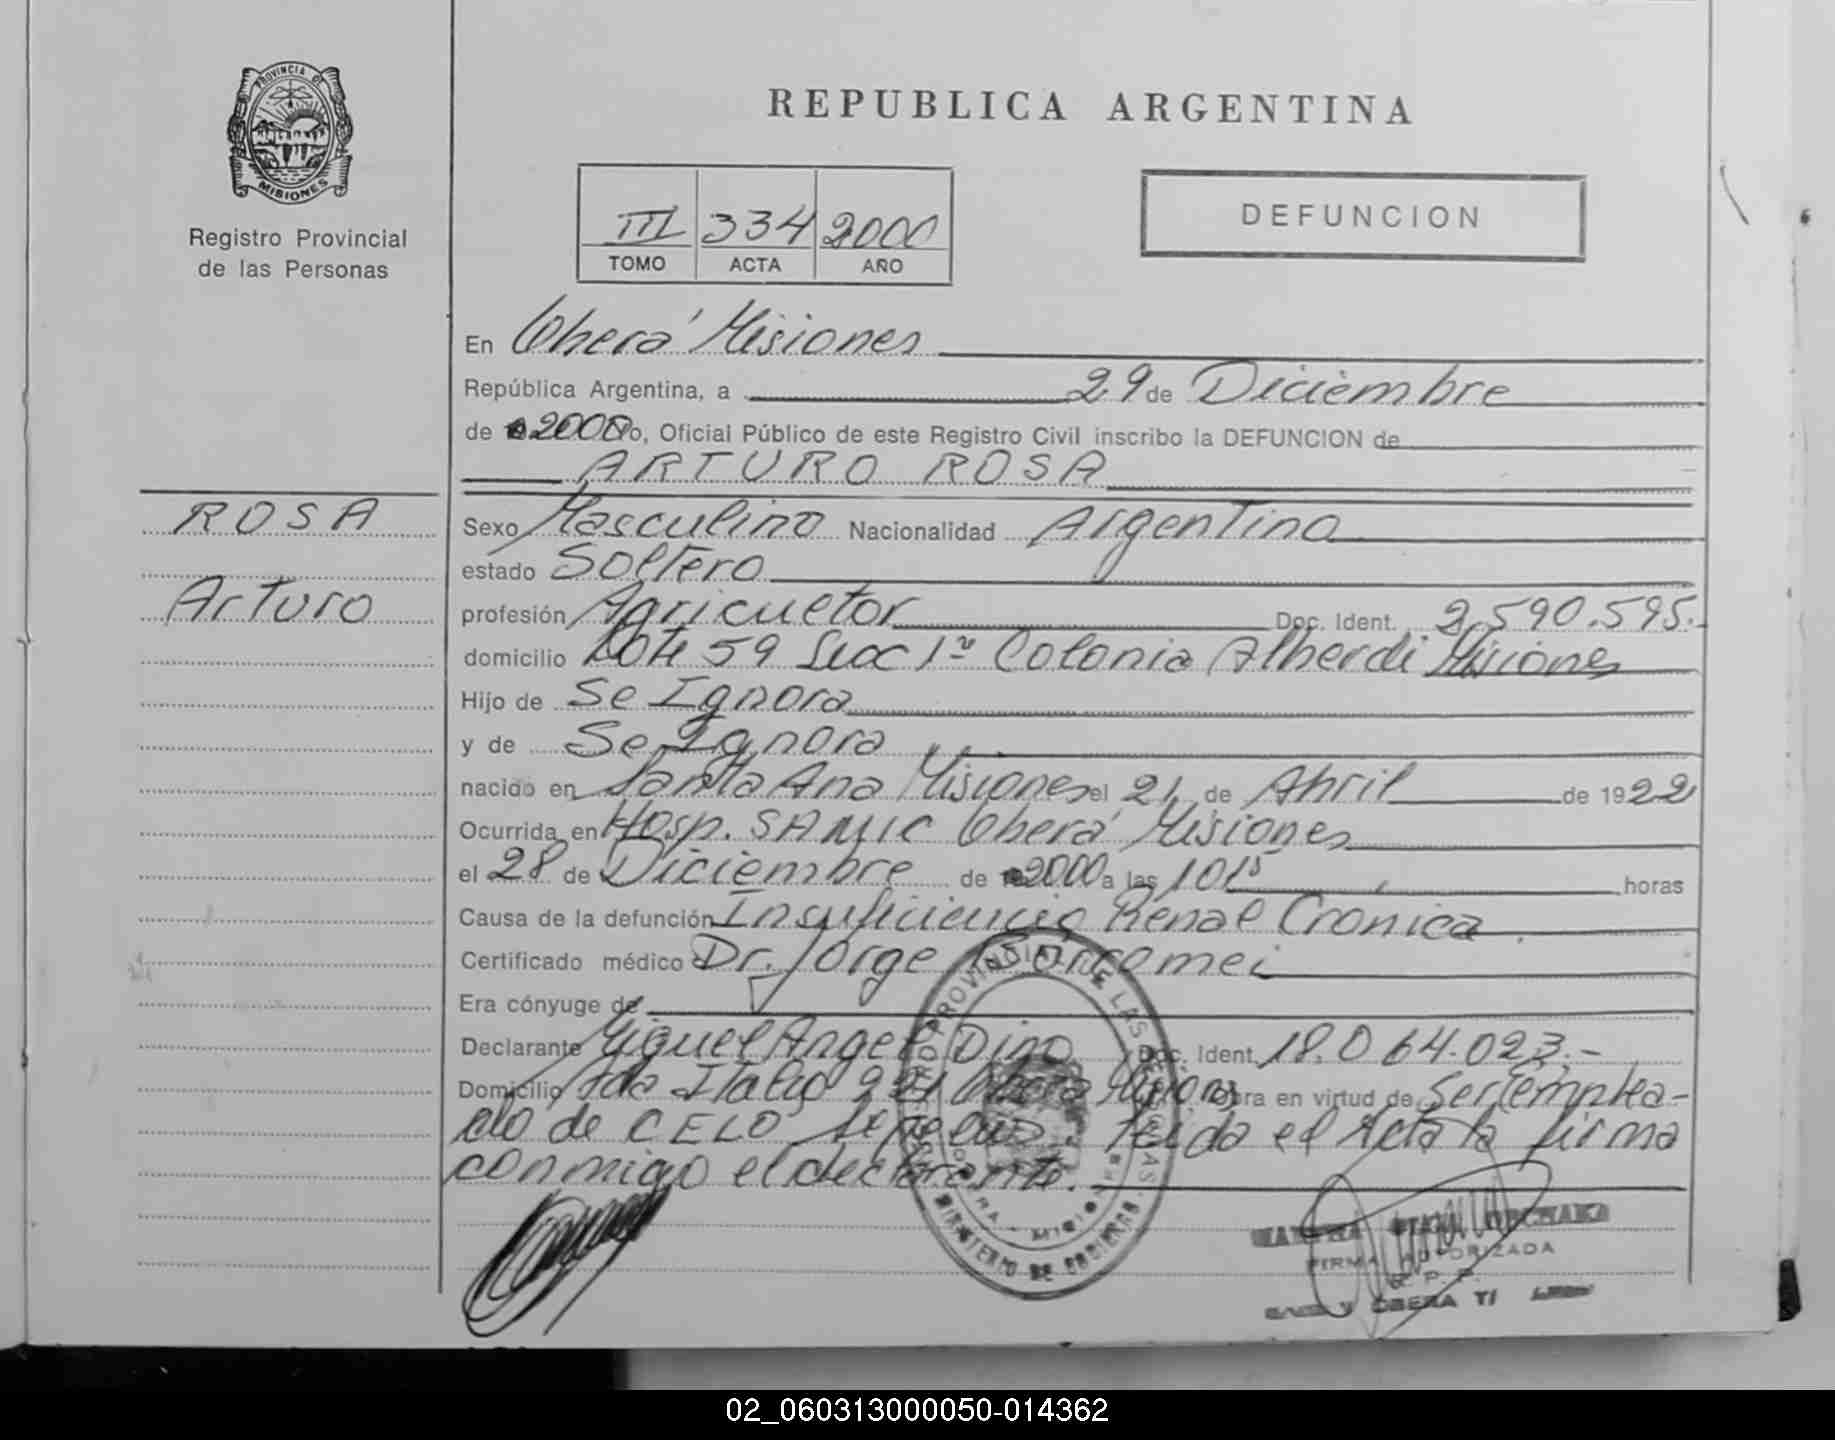 PROVINCIA DE
MISIONES
Registro Provincial
de las Personas
REPUBLICA ARGENTINA
III 334 2000
TOMO ACTA AÑO
DEFUNCION
En Oberá Misiones
República Argentina, a 29 de Diciembre
de 2000 Yo, Oficial Público de este Registro Civil inscribo la DEFUNCION de
ARTURO ROSA
ROSA
Arturo
Sexo Masculino Nacionalidad Argentina
estado Soltero
profesión Agricultor Doc. Ident. 2.590.595.
domicilio Lote 59 Secc 1ª Colonia Alberdi Misiones
Hijo de Se Ignora
y de Se Ignora
nacido en Santa Ana Misiones el 21 de Abril de 1922
Ocurrida en Hosp. SAMIC Oberá Misiones
el 28 de Diciembre de 2000 a las 10 15 horas
Causa de la defunción Insuficiencia Renal Cronica
Certificado médico Dr. Jorge
Era cónyuge de
Declarante Miguel Angel Dino Doc. Ident. 18.064.023.-
Domicilio Italia 921 Oberá Misiones Obra en virtud de Ser Emplea-
do de CELO Sepelios. Leida el Acta la firma
conmigo el declarante.
REGISTRO PROVINCIAL DE LAS PERSONAS
MINISTERIO DE GOBIERNO
OBERA - MISIONES
FIRMA AUTORIZADA
R. P. P.
OBERA
02_060313000050-014362